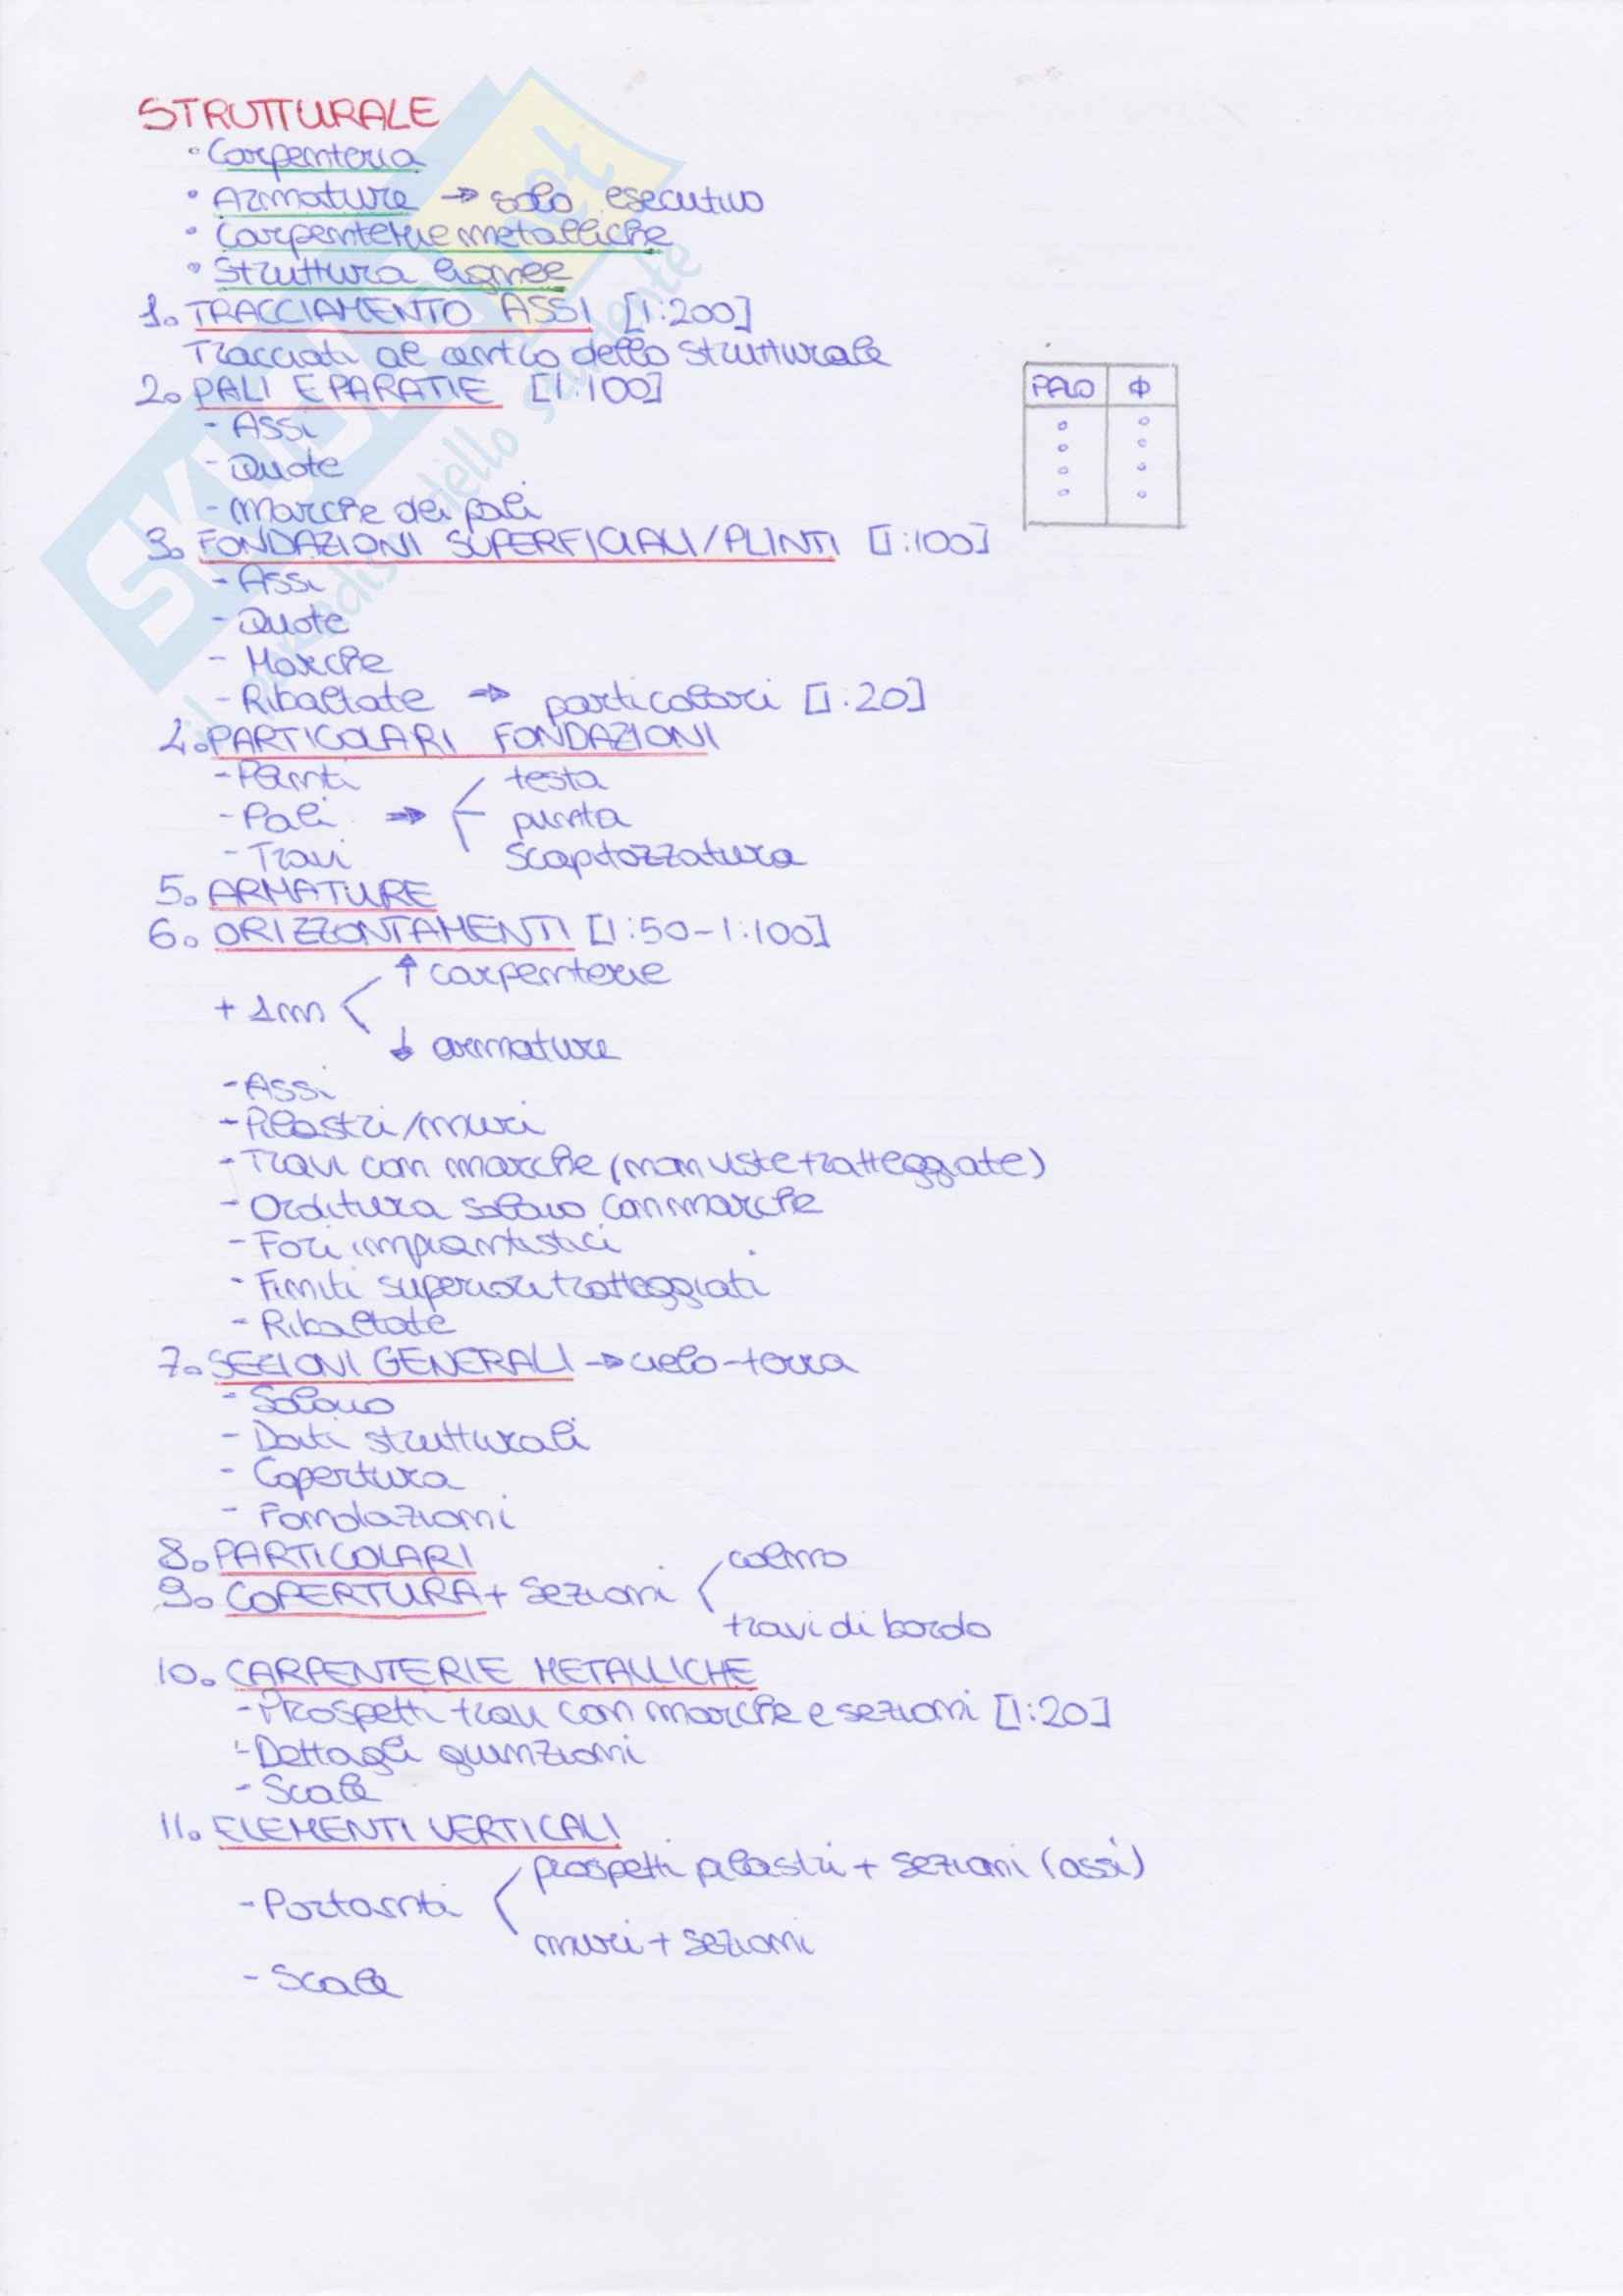 STRUTTURALE
• Carpenteria
• Armature → solo esecutivo
• Carpenterie metalliche
• Struttura lignee
1. TRACCIAMENTO ASSI [1:200]
Tracciati al centro dello strutturale
2. PALI E PARATIE [1:100]
- Assi
- Quote
- Marche dei pali
PALO Φ
3. FONDAZIONI SUPERFICIALI/PLINTI [1:100]
- Assi
- Quote
- Marche
- Ribaltate → particolari [1:20]
4. PARTICOLARI FONDAZIONI
- Plinti
testa
- Pali → punta
- Travi
scapitozzatura
5. ARMATURE
6. ORIZZONTAMENTI [1:50-1:100]
↑ carpenterie
+ 1m
↓ armature
- Assi
- Pilastri/muri
- Travi con marche (non viste tratteggiate)
- Orditura solaio con marche
- Fori impiantistici
- Finiti superiori tratteggiati
- Ribaltate
7. SEZIONI GENERALI → cielo-terra
- Solaio
- Dati strutturali
- Copertura
- Fondazioni
8. PARTICOLARI
9. COPERTURA + sezioni
colmo
travi di bordo
10. CARPENTERIE METALLICHE
- Prospetti travi con marche e sezioni [1:20]
- Dettagli giunzioni
- Scale
11. ELEMENTI VERTICALI
- Portanti
prospetti pilastri + sezioni (assi)
muri + sezioni
- Scale
SKUOLA.net
il paradiso dello studente